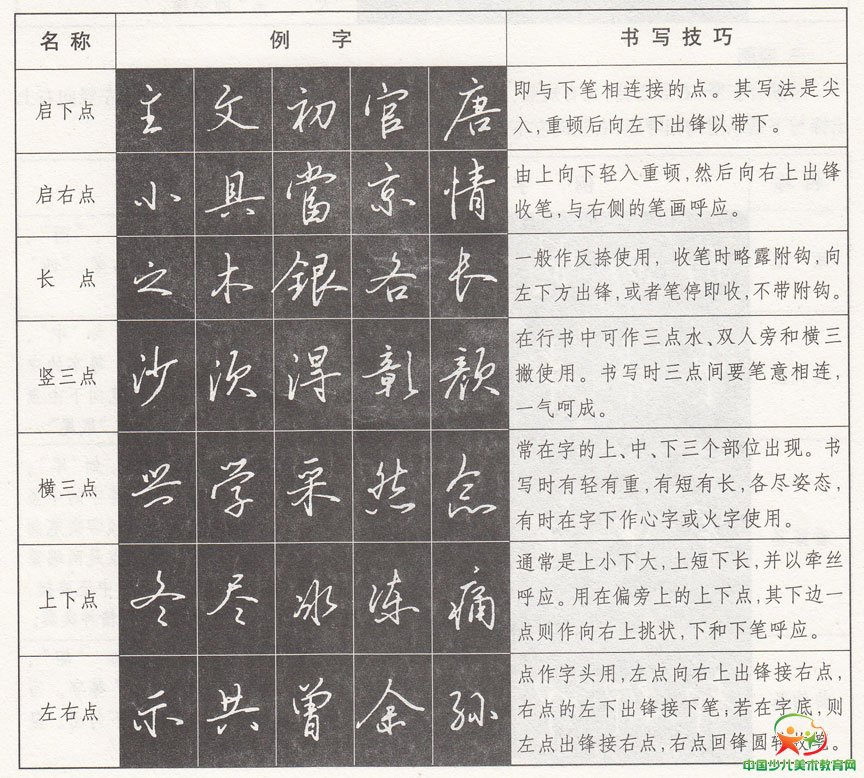 名称 例 字 书写技巧
启下点 主 文 初 官 唐
即与下笔相连接的点。其写法是尖
入,重顿后向左下出锋以带下。
启右点 小 具 當 京 情
由上向下轻入重顿,然后向右上出锋
收笔,与右侧的笔画呼应。
长 点 之 木 銀 各 长
一般作反捺使用, 收笔时略露附钩,向
左下方出锋,或者笔停即收,不带附钩。
竖三点 沙 须 得 彰 颜
在行书中可作三点水、双人旁和横三
撇使用。书写时三点间要笔意相连,
一气呵成。
横三点 兴 学 采 然 念
常在字的上、中、下三个部位出现。书
写时有轻有重,有短有长,各尽姿态,
有时在字下作心字或火字使用。
上下点 冬 尽 冰 冻 痛
通常是上小下大,上短下长,并以牵丝
呼应。用在偏旁上的上下点,其下边一
点则作向右上挑状,下和下笔呼应。
左右点 示 共 曾 余 孙
点作字头用,左点向右上出锋接右点,
右点的左下出锋接下笔;若在字底,则
左点出锋接右点,右点回锋圆转收笔。
中国少儿美术教育网